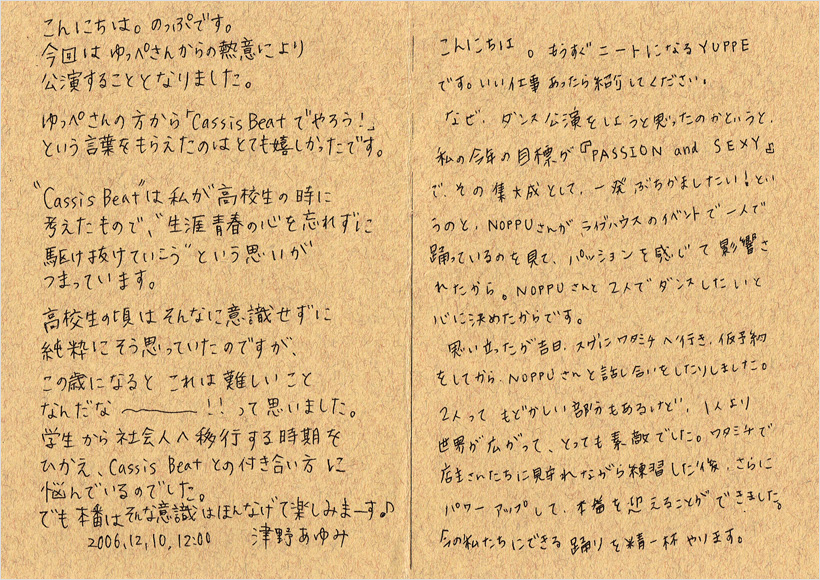 こんにちは。のっぷです。
今回は ゆっぺさんからの熱意により
公演することとなりました。
ゆっぺさんの方から「Cassis Beatでやろう!」
という言葉をもらえたのはとても嬉しかったです。
"Cassis Beat"は私が高校生の時に
考えたもので、"生涯青春の心を忘れずに
駆け抜けていこう"という思いが
つまっています。
高校生の頃はそんなに意識せずに
純粋にそう思っていたのですが、
この歳になると これは難しいこと
なんだな 〜 !! って思いました。
学生から社会人へ移行する時期を
ひかえ、Cassis Beat との付き合い方に
悩んでいるのでした。
でも本番はそんな意識はほんなげて楽しみまーす♪
2006,12,10,12:00 津野あゆみ
こんにちは。もうすぐニートになるYUPPE
です。いい仕事あったら紹介してください。
なぜ、ダンス公演をしようと思ったのかというと、
私の今年の目標が『PASSION and SEXY』
で、その集大成として、一発ぶちかましたい!とい
うのと、NOPPUさんがライヴハウスのイベントで一人で
踊っているのを見て、パッションを感じて影響さ
れたから。NOPPUさんと2人でダンスしたいと
心に決めたからです。
思い立ったが吉日、スグにワタミチへ行き、仮予約
をしてから、NOPPUさんと話し合いをしたりしました。
2人って もどかしい部分もあるけど、1人より
世界が広がって、とっても素敵でした。ワタミチで
店主さんたちに見守れながら練習した後、さらに
パワーアップして、本番を迎えることができました。
今の私たちにできる踊りを精一杯やります。